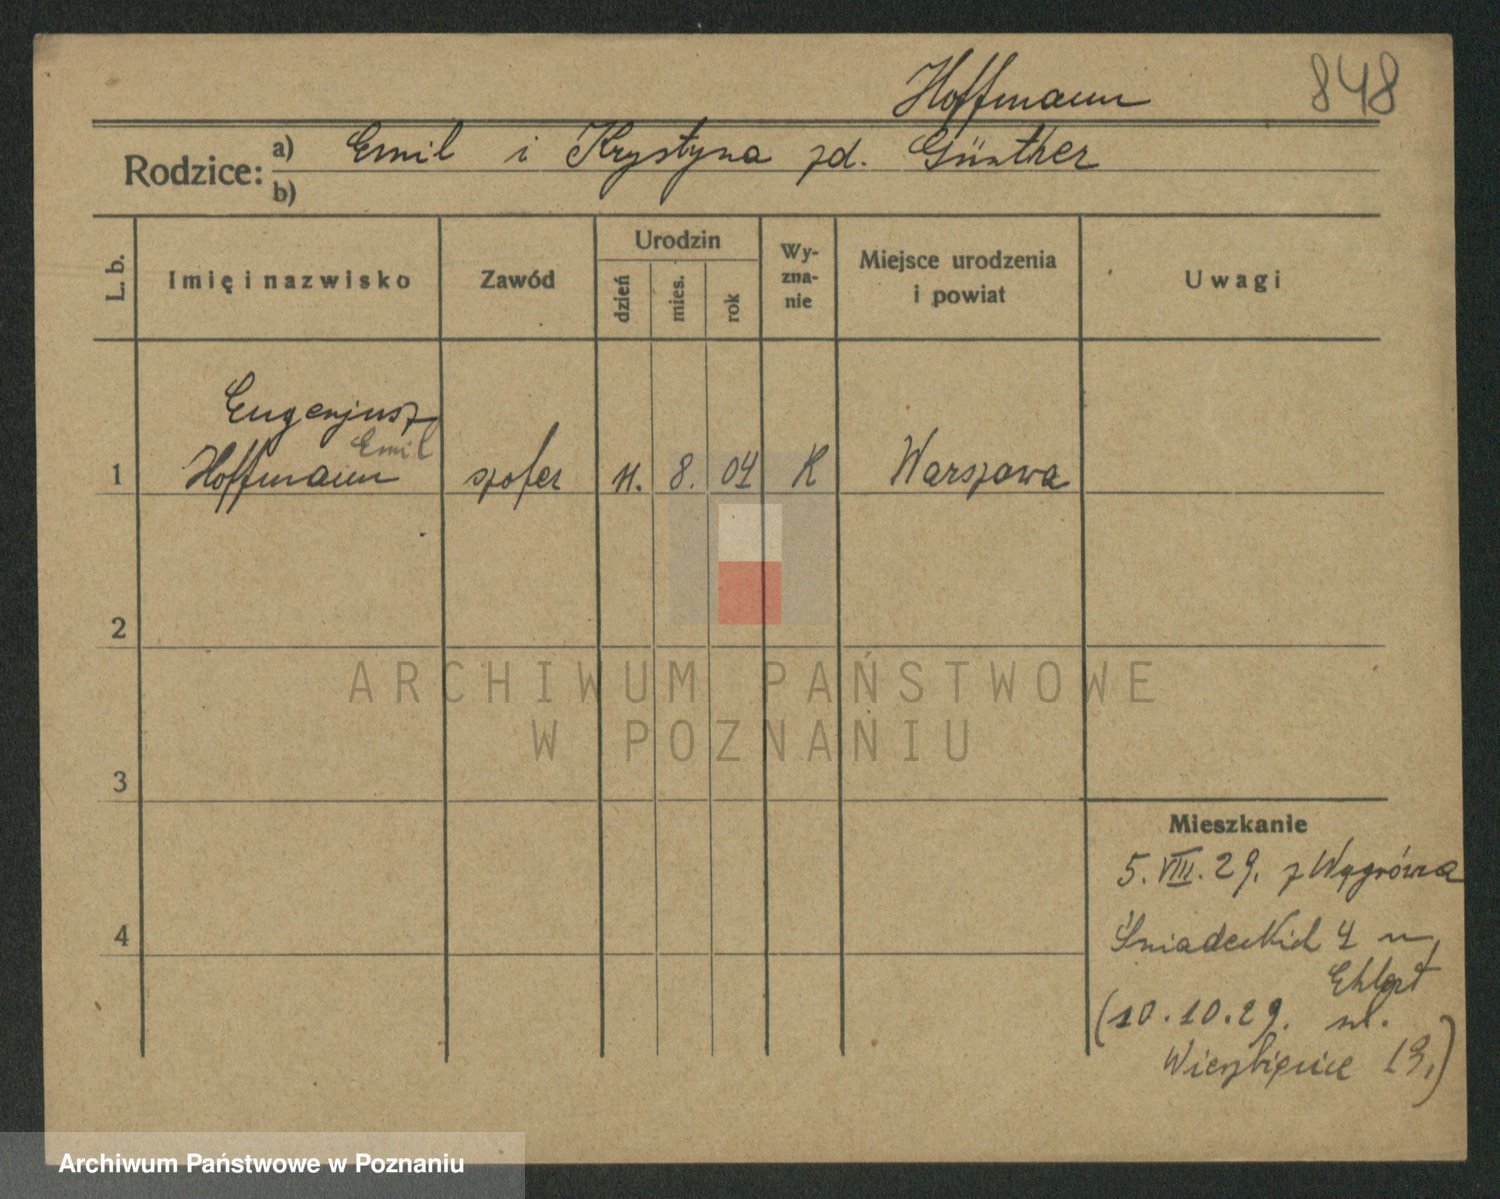 Hoffmann
848
Rodzice:
a) Emil i Krystyna zd. Günther
b)
L. b.
Imię i nazwisko
Zawód
Urodzin
dzień
mies.
rok
Wy-
zna-
nie
Miejsce urodzenia
i powiat
Uwagi
Eugenjusz
Emil
1 Hoffmann szofer 11. 8. 04 K Warszawa
2
3
4
Mieszkanie
5.VIII.29. z Wągrówca
Śniadeckich 4 u
Ehlert
(10.10.29. ul.
Wierzbięcice 13.)
ARCHIWUM PAŃSTWOWE
W POZNANIU
Archiwum Państwowe w Poznaniu